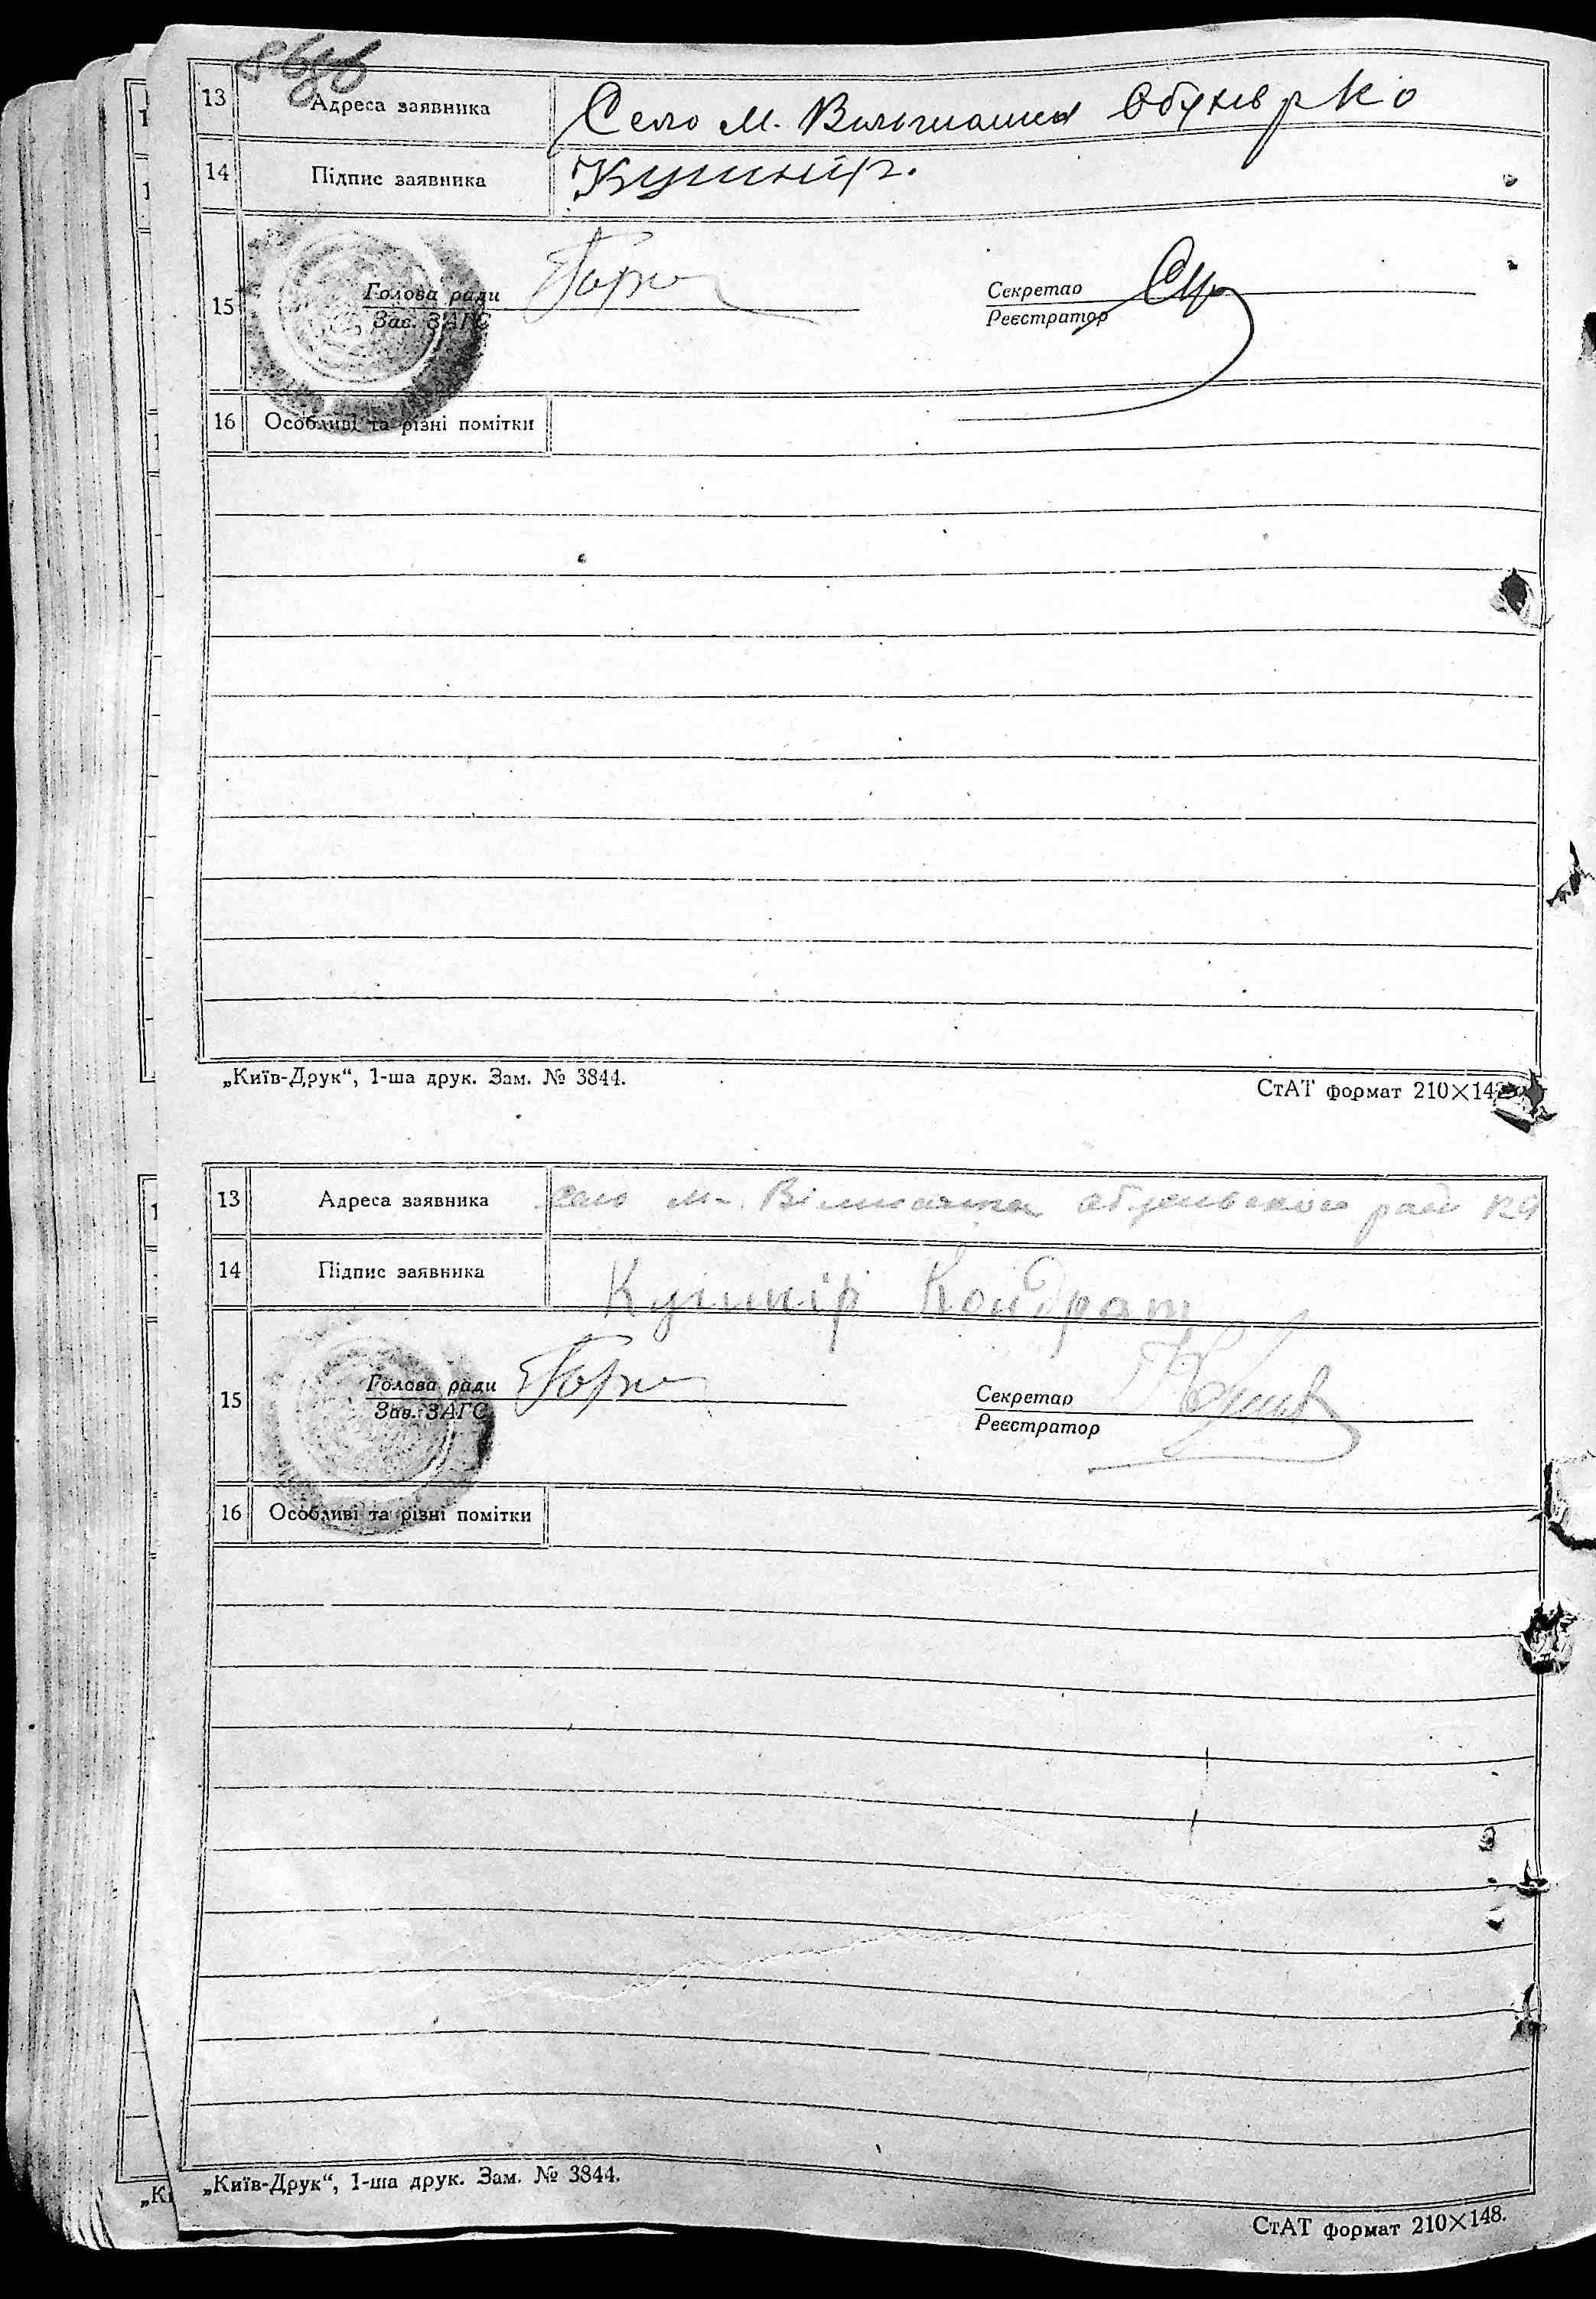 13 Адреса заявника Село М. Вільшанка Обухів р К о
14 Підпис заявника Кушнір.
15 Голова ради
Зав. ЗАГС
Секретар
Реєстратор
16 Особливі та різні помітки
„Київ-Друк“, 1-ша друк. Зам. № 3844.
СтАТ формат 210×148
13 Адреса заявника село М- Вільшанка
14 Підпис заявника Кушнір Кондрат
15 Голова ради
Зав. ЗАГС
Секретар
Реєстратор
16 Особливі та різні помітки
„Київ-Друк“, 1-ша друк. Зам. № 3844.
СтАТ формат 210×148.